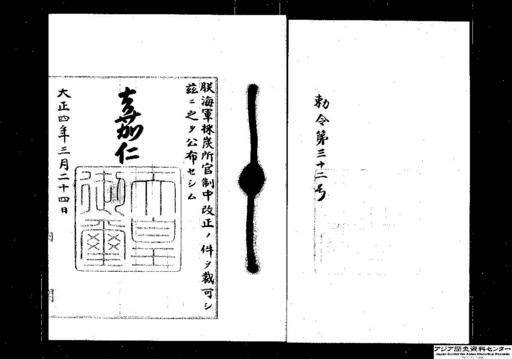 勅令第三十二号
朕海軍採炭所官制中改正ノ件ヲ裁可シ
茲ニ之ヲ公布セシム
嘉仁
天皇御璽
大正四年三月二十四日
アジア歴史資料センター
Japan Center for Asian Historical Records